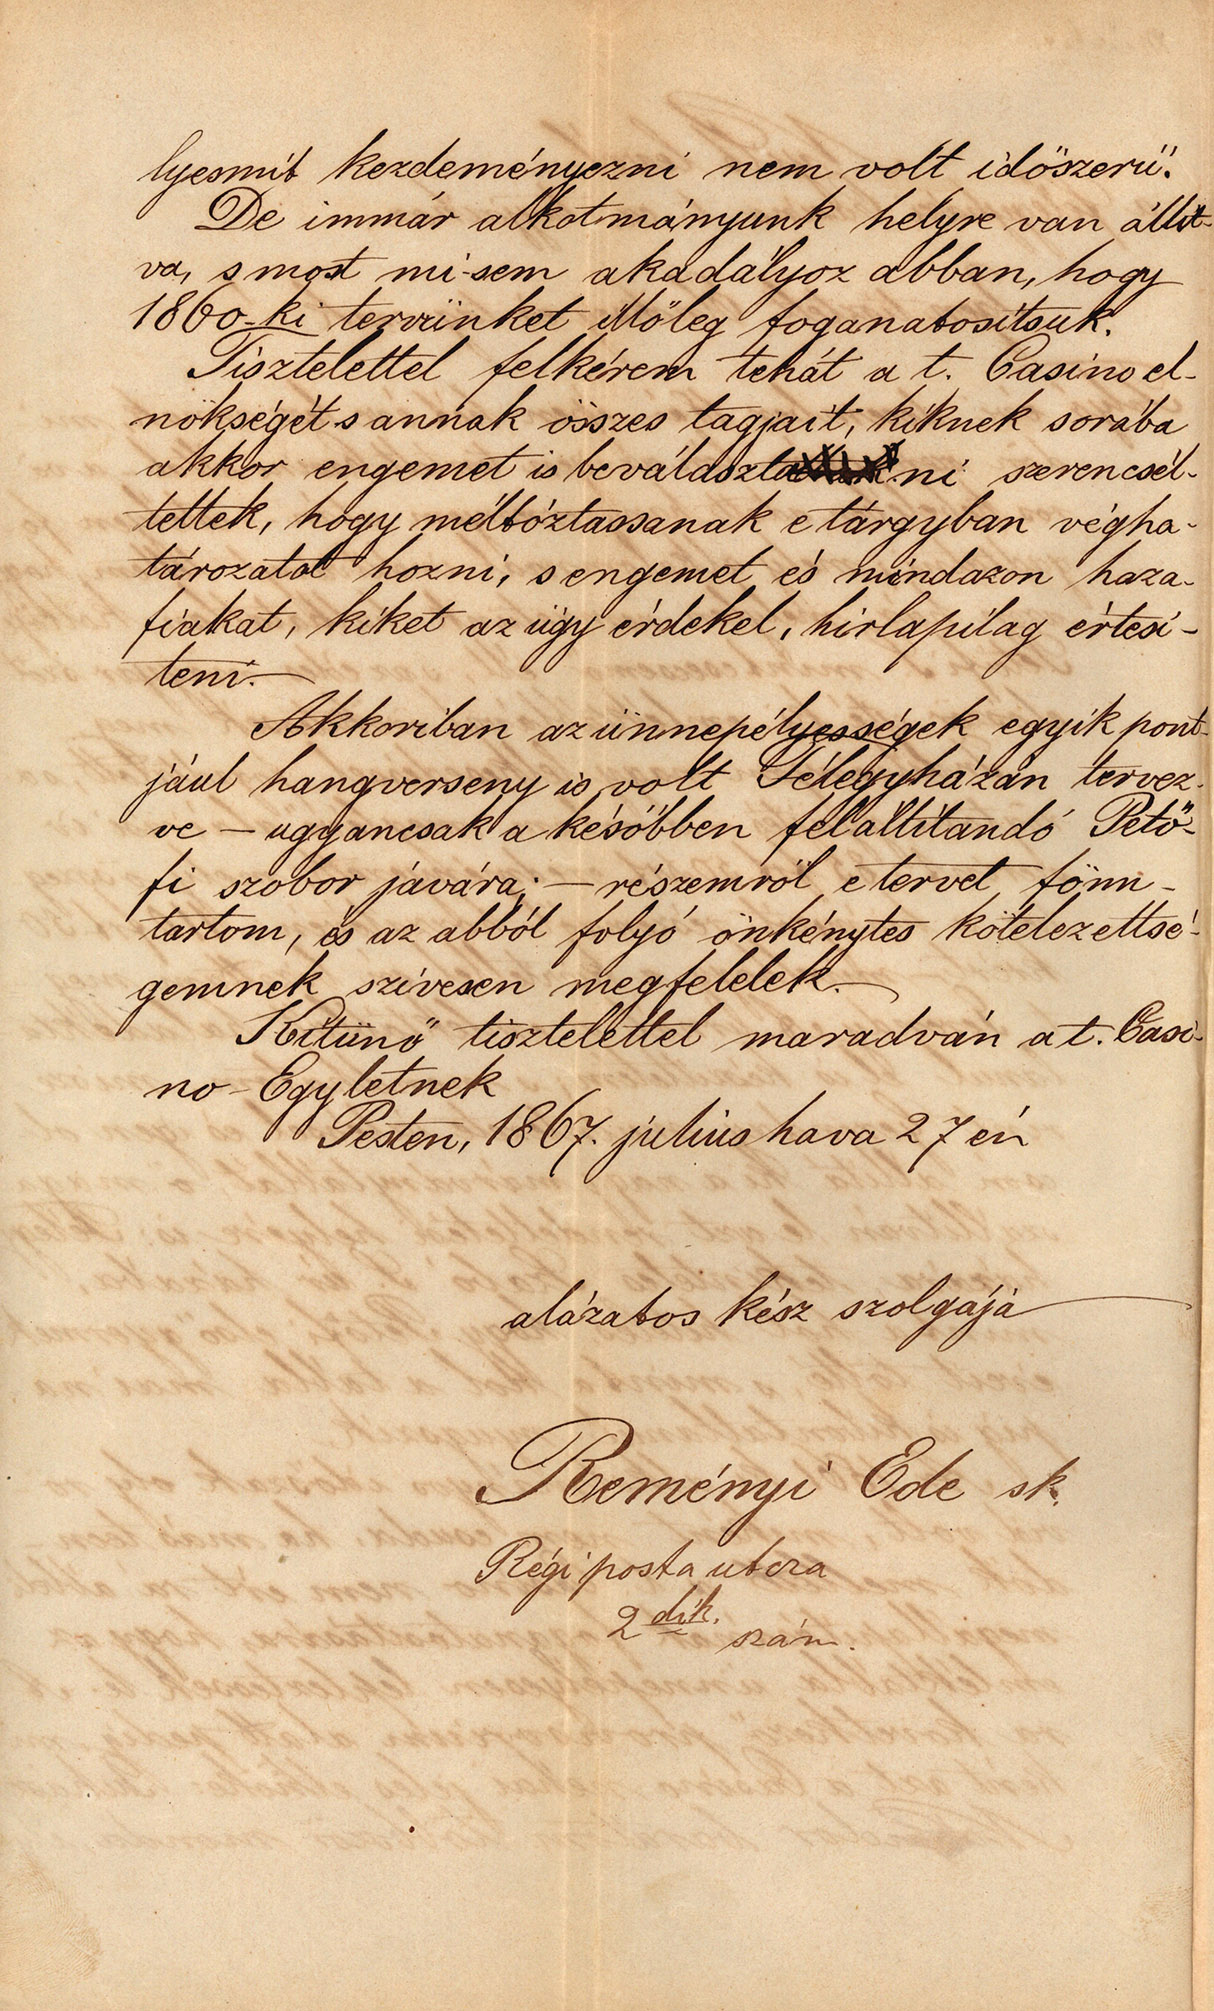 lyesmit kezdeményezni nem volt időszerű.
De immár alkotmányunk helyre van állit-
va, s most mi sem akadályoz abban, hogy
1860-ki tervünket illőleg foganatosítsuk.
Tisztelettel felkérem tehát a t. Casino el-
nökségét s annak összes tagjait, kiknek sorába
akkor engemet is beválaszta ni szerencsél-
tettek, hogy méltóztassanak e tárgyban végha-
tározatot hozni, s engemet és mindazon haza-
fiakat, kiket az ügy érdekel, hirlapilag értesi-
teni.—
Akkoriban az ünnepélyességek egyik pont-
jául hangverseny is volt Félegyházán tervez-
ve — ugyancsak a későbben felállítandó Pető-
fi szobor javára; — részemről e tervet fönn-
tartom, és az abból folyó önkénytes kötelezettsé-
gemnek szívesen megfelelek.—
Kitünő tisztelettel maradván a t. Casi-
no-Egyletnek
Pesten, 1867. július hava 27 én
alázatos kész szolgája
Reményi Ede sk.
Régi posta utcza
2dik. szám.